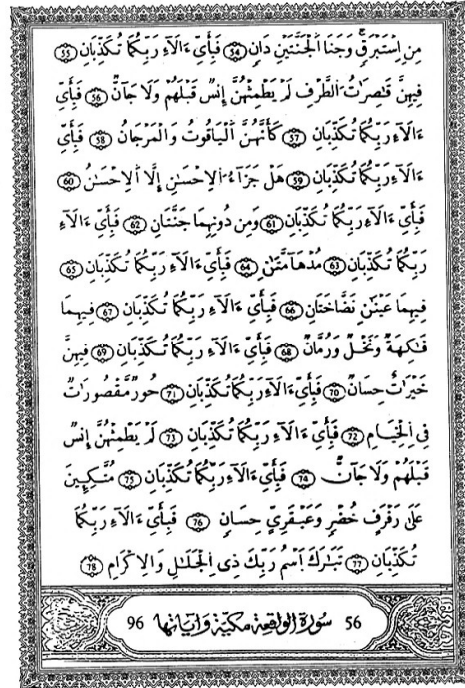 مِنِ اِسْتَبْرَقٍ وَجَنَا اَلْجَنَّتَيْنِ دَانٍ 54 فَبِأَيِّ ءَالَآءِ رَبِّكُمَا تُكَذِّبَانِ 55
فِيهِنَّ قَٰصِرَٰتُ اُلطَّرْفِ لَمْ يَطْمِثْهُنَّ إِنسٌ قَبْلَهُمْ وَلَا جَآنٌّ 56 فَبِأَيِّ
ءَالَآءِ رَبِّكُمَا تُكَذِّبَانِ 57 كَأَنَّهُنَّ اَلْيَاقُوتُ وَالْمَرْجَانُ 58 فَبِأَيِّ
ءَالَآءِ رَبِّكُمَا تُكَذِّبَانِ 59 هَلْ جَزَآءُ اُلِاحْسَٰنِ إِلَّا اَلِاحْسَٰنُ 60
فَبِأَيِّ ءَالَآءِ رَبِّكُمَا تُكَذِّبَانِ 61 وَمِن دُونِهِمَا جَنَّتَانِ 62 فَبِأَيِّ ءَالَآءِ
رَبِّكُمَا تُكَذِّبَانِ 63 مُدْهَآمَّتَٰنِ 64 فَبِأَيِّ ءَالَآءِ رَبِّكُمَا تُكَذِّبَانِ 65
فِيهِمَا عَيْنَٰنِ نَضَّاخَتَانِ 66 فَبِأَيِّ ءَالَآءِ رَبِّكُمَا تُكَذِّبَانِ 67 فِيهِمَا
فَٰكِهَةٌ وَنَخْلٌ وَرُمَّانٌ 68 فَبِأَيِّ ءَالَآءِ رَبِّكُمَا تُكَذِّبَانِ 69 فِيهِنَّ
خَيْرَٰتٌ حِسَانٌ 70 فَبِأَيِّ ءَالَآءِ رَبِّكُمَا تُكَذِّبَانِ 71 حُورٌ مَّقْصُورَاتٌ
فِي اِلْخِيَامِ 72 فَبِأَيِّ ءَالَآءِ رَبِّكُمَا تُكَذِّبَانِ 73 لَمْ يَطْمِثْهُنَّ إِنسٌ
قَبْلَهُمْ وَلَا جَآنٌّ 74 فَبِأَيِّ ءَالَآءِ رَبِّكُمَا تُكَذِّبَانِ 75 مُتَّكِـِٕينَ
عَلَىٰ رَفْرَفٍ خُضْرٍ وَعَبْقَرِيٍّ حِسَانٍ 76 فَبِأَيِّ ءَالَآءِ رَبِّكُمَا
تُكَذِّبَانِ 77 تَبَٰرَكَ اَسْمُ رَبِّكَ ذِي اِلْجَلَٰلِ وَالِاكْرَامِ 78
56 سورة الواقعة مكية وآياتها 96